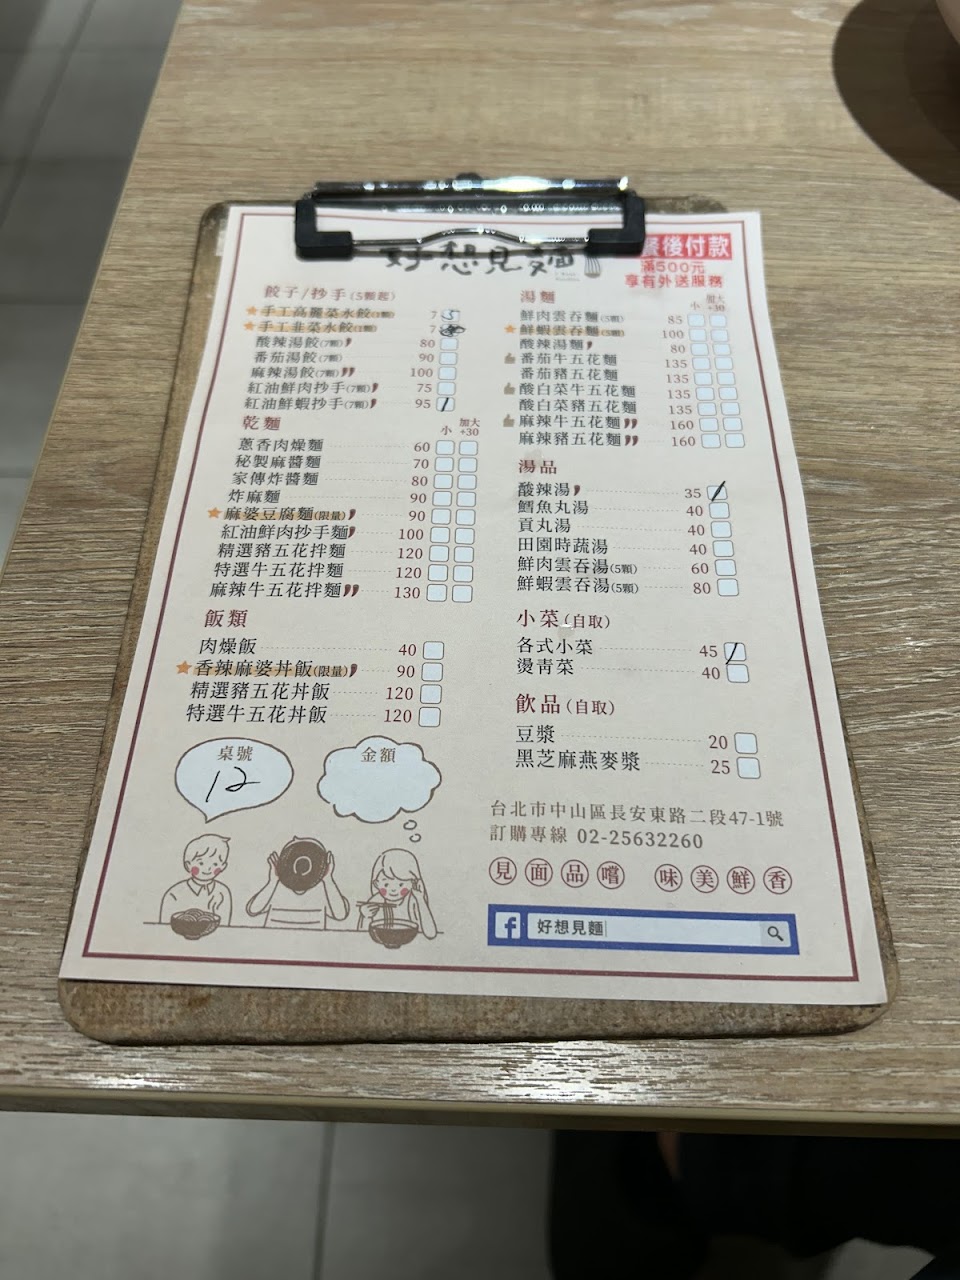 好想見麵
餐後付款
滿500元
享有外送服務
餃子/抄手(5顆起)
手工高麗菜水餃(1顆) 7 5
手工韭菜水餃(1顆) 7
酸辣湯餃(7顆) 80
番茄湯餃(7顆) 90
麻辣湯餃(7顆) 100
紅油鮮肉抄手(7顆) 75
紅油鮮蝦抄手(7顆) 95 /
乾麵 小 加大+30
蔥香肉燥麵 60
秘製麻醬麵 70
家傳炸醬麵 80
炸麻麵 90
麻婆豆腐麵(限量) 90
紅油鮮肉抄手麵 100
精選豬五花拌麵 120
特選牛五花拌麵 120
麻辣牛五花拌麵 130
飯類
肉燥飯 40
香辣麻婆丼飯(限量) 90
精選豬五花丼飯 120
特選牛五花丼飯 120
桌號
12
金額
湯麵 小 加大+30
鮮肉雲吞麵(5顆) 85
鮮蝦雲吞麵(5顆) 100
酸辣湯麵 80
番茄牛五花麵 135
番茄豬五花麵 135
酸白菜牛五花麵 135
酸白菜豬五花麵 135
麻辣牛五花麵 160
麻辣豬五花麵 160
湯品
酸辣湯 35 /
鱈魚丸湯 40
貢丸湯 40
田園時蔬湯 40
鮮肉雲吞湯(5顆) 60
鮮蝦雲吞湯(5顆) 80
小菜(自取)
各式小菜 45 /
燙青菜 40
飲品(自取)
豆漿 20
黑芝麻燕麥漿 25
台北市中山區長安東路二段47-1號
訂購專線 02-25632260
見面品嚐 味美鮮香
f 好想見麵